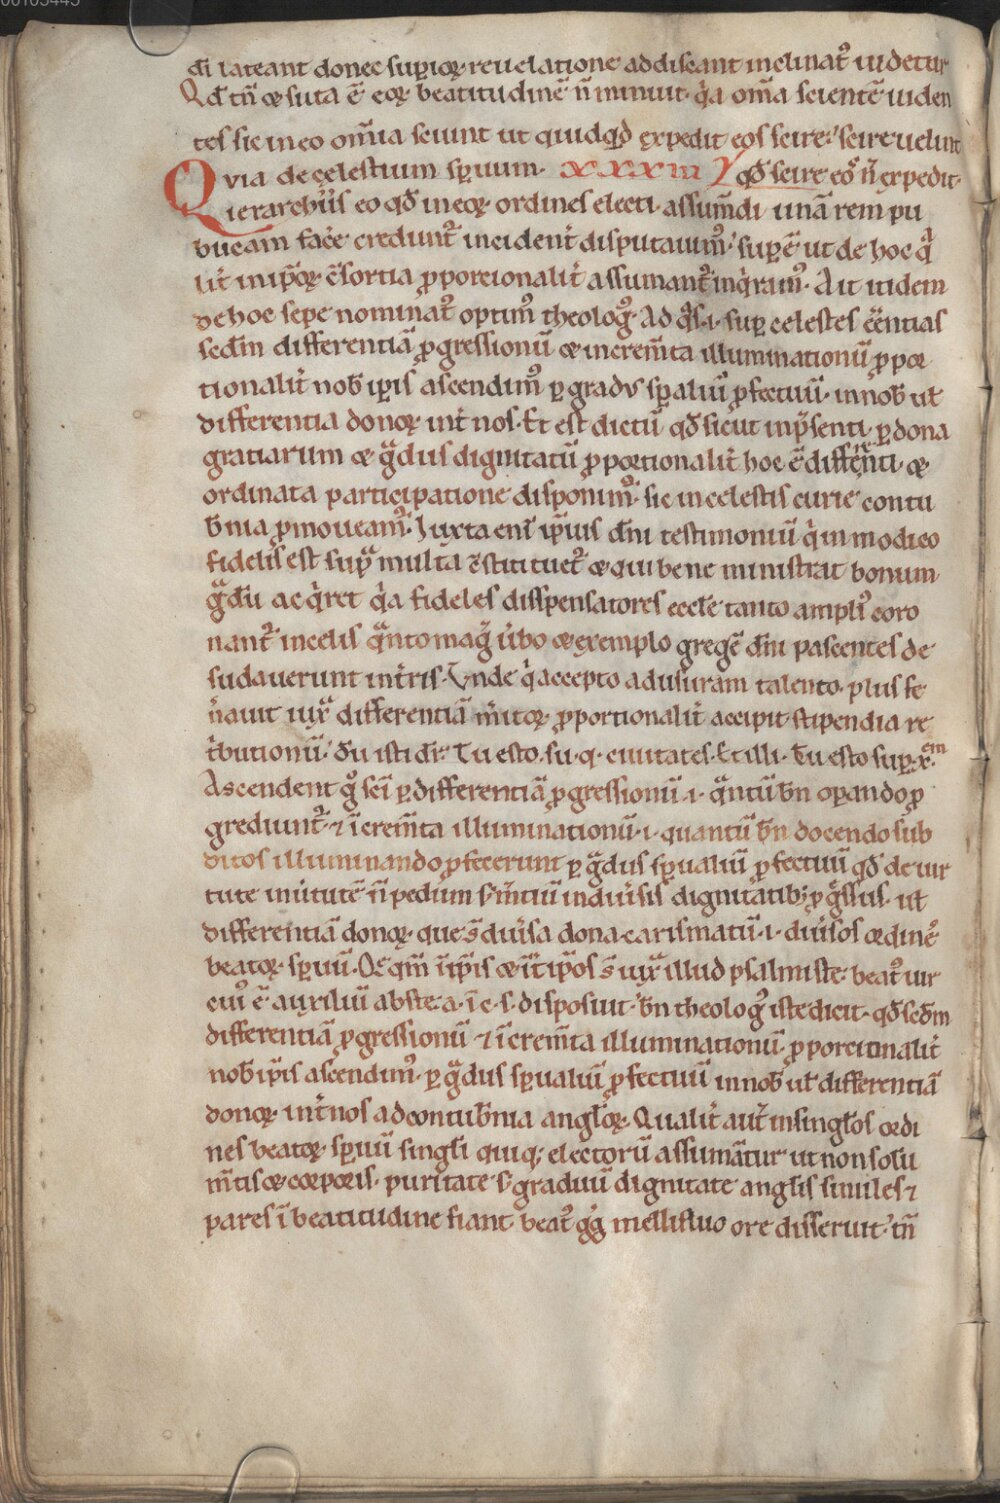 di lateant donec supioꝝ reuelatione addiscant inclinat᷒ uidetur
Qd tn̄ ⁊ suta ē eoꝝ beatitudinē n̄ minuit. qͥa om̄a scientē uiden
tes sic in eo om̄ia sciunt ut quidqd expedit eos scire scire uelint
Quia de celestium sp̄uum. xxxiii qd̄ scire eos n̄ expedit.
ierarchiis eo qd̄ in eoꝝ ordines electi assum̄di unā rem pu
blicam face credunt᷒ incident̄ disputauim᷒ supē ut de hoc qͣ
lit̄ in ip̄oꝝ c̄sortia ꝓporcionalit̄ assumant᷒ inqͥram᷒. Ait itidem
de hoc sepe nominat᷒ optim᷒ theologꝰ. Ad qͣs .i. sup celestes eēntias
secd̄m differentiā ꝓgressionū ⁊ increm̄ta illuminationū ꝓpor
tionalit̄ nob̄ ip̄is ascendim᷒ ꝑ gradus sp̄aliū ꝓfectuū. in nob̄ ut
differentia donoꝝ int̄ nos. Et est dictū qd̄ sicut in p̄senti ꝑ dona
gratiarum ⁊ gͣdus dignitatū ꝓportionalit̄ hoc ē differenti. ⁊
ordinata participatione disponim᷒. sic in celestis curie contu
b̄nia ꝓmoueam᷒. Iuxta eni ip̄ius dn̄i testimoniū qͥ in modico
fidelis est supͣ multa c̄stituet᷒ ⁊ qui bene ministrat bonum
gͣdū acqͥret qͥa fideles dispensatores eccl̄e tanto ampli᷒ coro
nant᷒ in celis qͣnto magꝭ ūbo ⁊ exemplo gregē dn̄i pascentes de
sudauerunt in t̄ris. Vnde qͥ accepto ad usuram talento. plus fe
n̄auit iuxͣ differentiā m̄itoꝝ ꝓportionalit̄ accipit stipendia re
t̄butionū. dū isti dr̄. Tu esto. su. q. ciuitates. Et illi. Tu esto sup. x.em
Ascendent gͦ sci ꝑ differentiā ꝓgressionū .i. qͣntū bn̄ opando ꝓ
grediunt᷒. ⁊ icrem̄ta illuminationū .i. quantū bn̄ docendo sub
ditos illuminando ꝓfecerunt ꝑ gͣdus sp̄ualiū ꝓfectuū qd̄ de uir
tute in ūtutē n̄ pedum s; m̄tiū in diuīsis dignitatib; ꝓgͣssus. ut
differentiā donoꝝ. que s̄ diuīsa dona carismatū .i. diuīsos ordine᷒
beatoꝝ sp̄uū. qm̄ ip̄is ⁊ it ip̄os s̄ iuxͣ illud psalmiste. beat᷒ uir
cui᷒ ē auxiliū abste. a. i c. s. disposuit. bn̄ theologꝰ iste dicit. qd̄ scd̄m
differentiā ꝓgressionū ⁊ icrem̄ta illuminationū. ꝓporcinalit̄
nob̄ ip̄is ascendim᷒. ꝑ gͣdus sp̄ualiū ꝓfectuū in nob̄ ut differentiā
donoꝝ. int̄ nos ad contub̄nia angl̄oꝝ. Qualit̄ aut̄ in singl̄os ordi
nes beatoꝝ sp̄uū singl̄i quiq; electorū assumātur ut non solū
m̄tis ⁊ corporis. puritate s; graduū dignitate angl̄is similes ⁊
pares i beatitudine fiant beat᷒ gg̊ mellifluo ore disseruit. tn̄